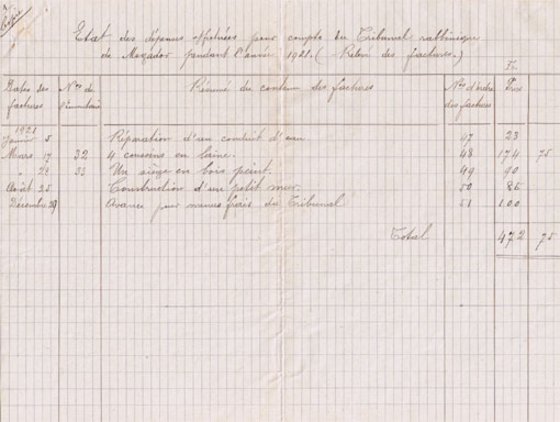 Etat des dépenses effectuées pour compte du Tribunal rabbinique
de Mogador pendant l'année 1921. (Relevé des factures.)
Fr.
Dates des factures Nos de l'inventaire Résumé du contenu des factures Nos d'ordre des factures Prix
1921
Janvier 5 Réparation d'un conduit d'eau. 47 23
Mars 17 32 4 coussins en laine. 48 174 75
" 28 33 Un siège en bois peint. 49 90
Août 25 Construction d'une petit mur. 50 85
Décembre 29 Avance pour menus frais du Tribunal 51 100
Total 472 75